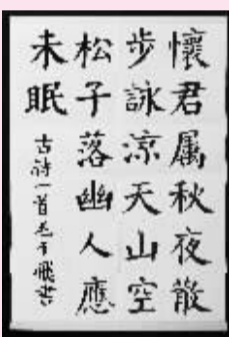 懷君属秋夜散
步詠涼天山空
松子落幽人應
未眠
古詩一首